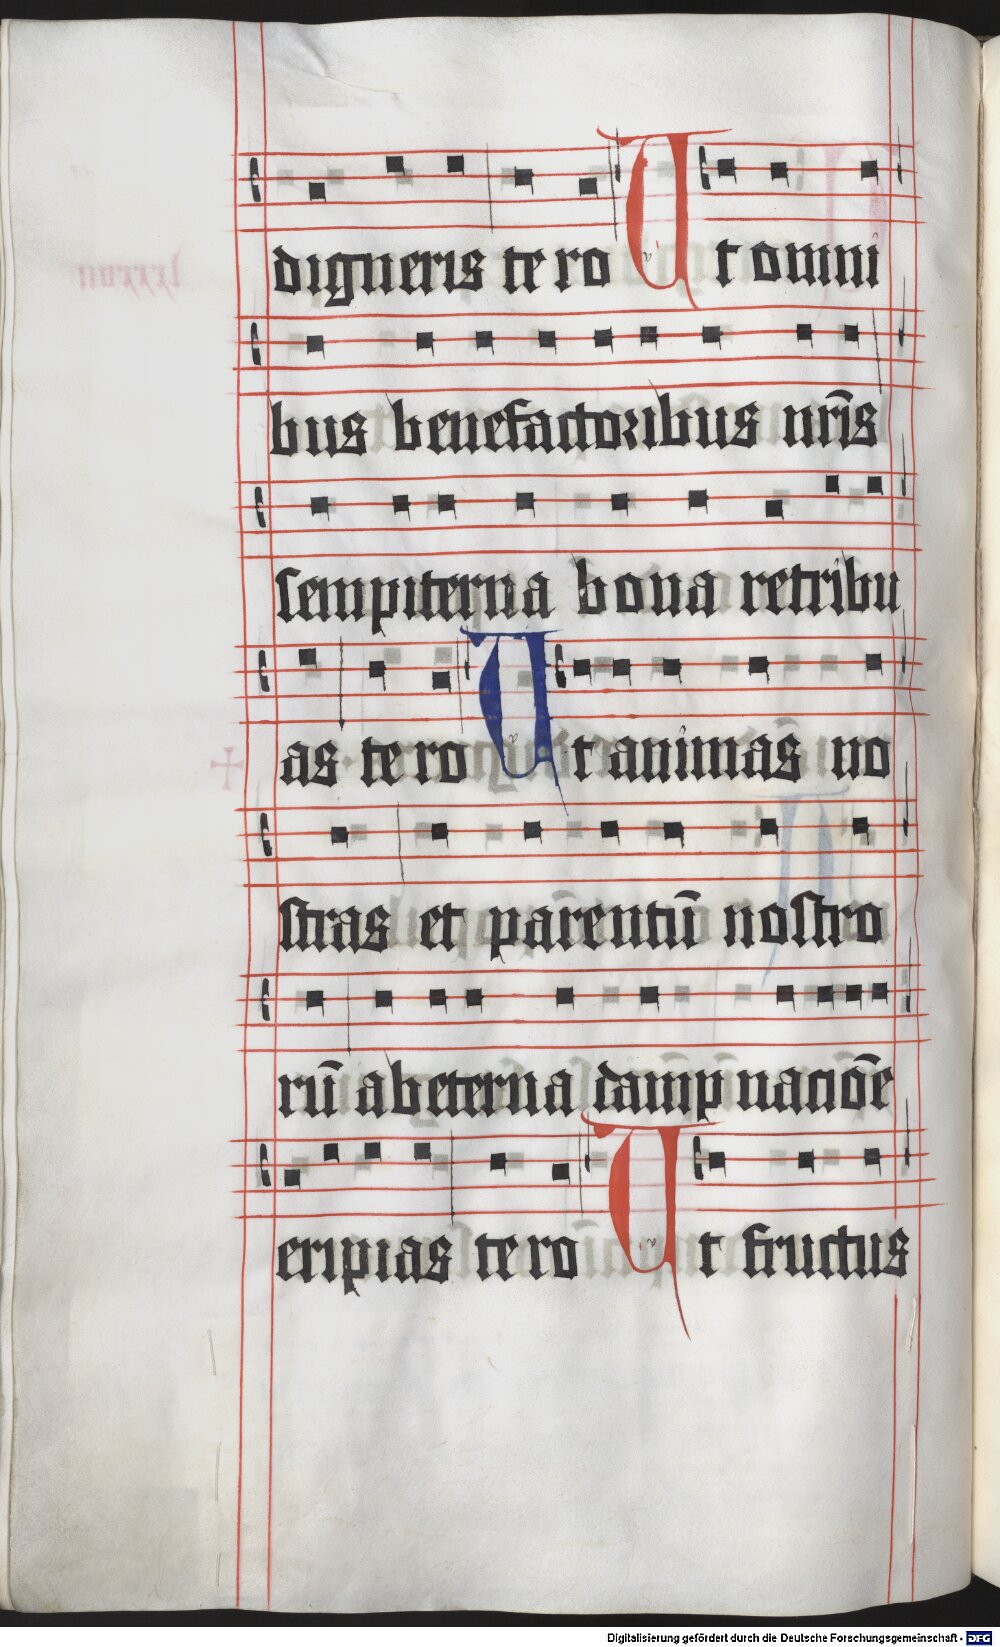 digneris te ro Ut omni
bus benefactoribus nr̄is
sempiterna bona retribu
as te ro Ut animas no
stras et parentū nostro
rū ab eterna dāmp naciōe
eripias te ro Ut fructus
Digitalisierung gefördert durch die Deutsche Forschungsgemeinschaft - DFG